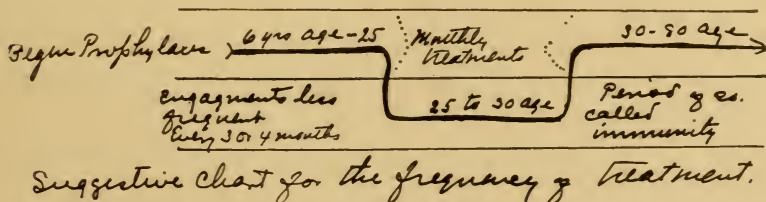 Begin Prophylaxis
6 yrs age - 25
Monthly
treatments
30-90 age
Engagments less
frequent
Every 3 or 4 months
25 to 30 age
Period of so.
called
immunity
Suggestive Chart for the frequency of treatment.